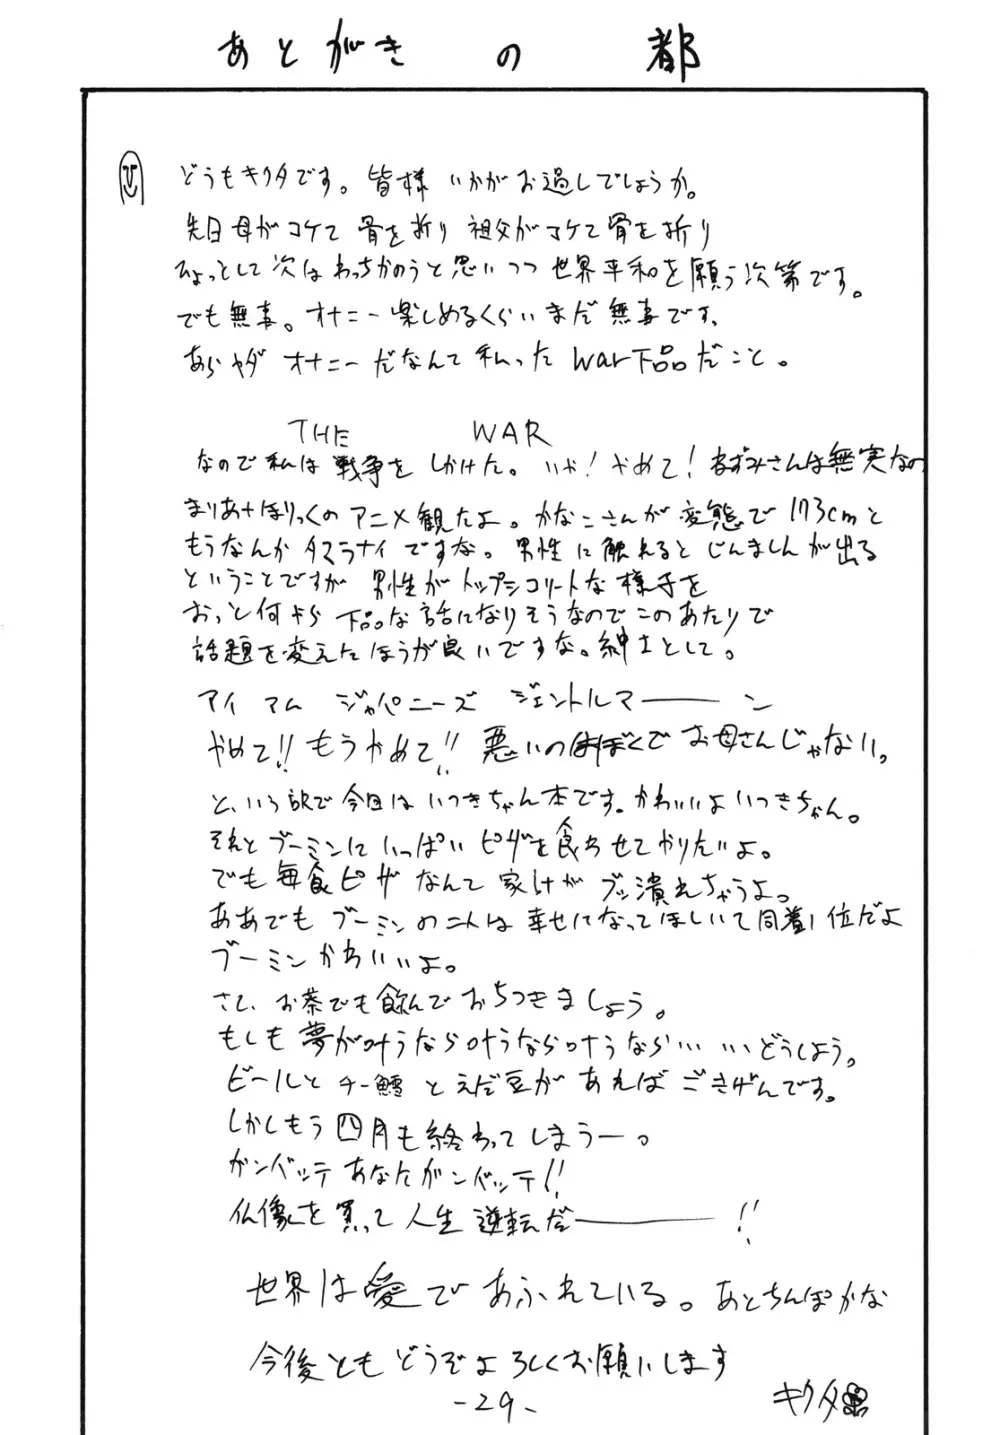 あとがきの都
どうもキクタです。皆様いかがお過しでしょうか。
先日母がコケて骨を折り祖父がコケて骨を折り
ひょっとして次はわっちかのうと思いつつ世界平和を願う次第です。
でも無事。オナニー楽しめるくらいまだ無事です。
あらヤダオナニーだなんて私ったwar下品だこと。
THE WAR
なので私は戦争をしかけた。いや!やめて!ねずみさんは無実なの
まりあ†ほりっくのアニメ観たよ。かなこさんが変態で173cmと
もうなんかタマラナイですな。男性に触れるとじんましんが出る
ということですが男性がトップシコリートな様子を
おっと何やら下品な話になりそうなのでこのあたりで
話題を変えたほうが良いですな。紳士として。
アイ アム ジャパニーズ ジェントルマーーン
やめて!!もうやめて!!悪いのはぼくでお母さんじゃない。
という訳で今日はいつきちゃん本です。かわいいよいつきちゃん。
それとブーミンにいっぱいピザを食わせてやりたいよ。
でも毎食ピザなんて家計がブッ潰れちゃうよっ
ああでもブーミンの二人は幸せになってほしいて同着1位だよ
ブーミンかわいいよ。
さて、お茶でも飲んでおちつきましょう。
もしも夢が叶うなら叶うなら叶うなら……どうしよう。
ビールとチー鱈とえだ豆があればごきげんです。
しかしもう四月も終わってしまうー。
ガンバッテあなたガンバッテ!!
仏像を買って人生逆転だーーー!!
世界は愛であふれている。あとちんぽかな
今後ともどうぞよろしくお願いします
-29-
キクタ